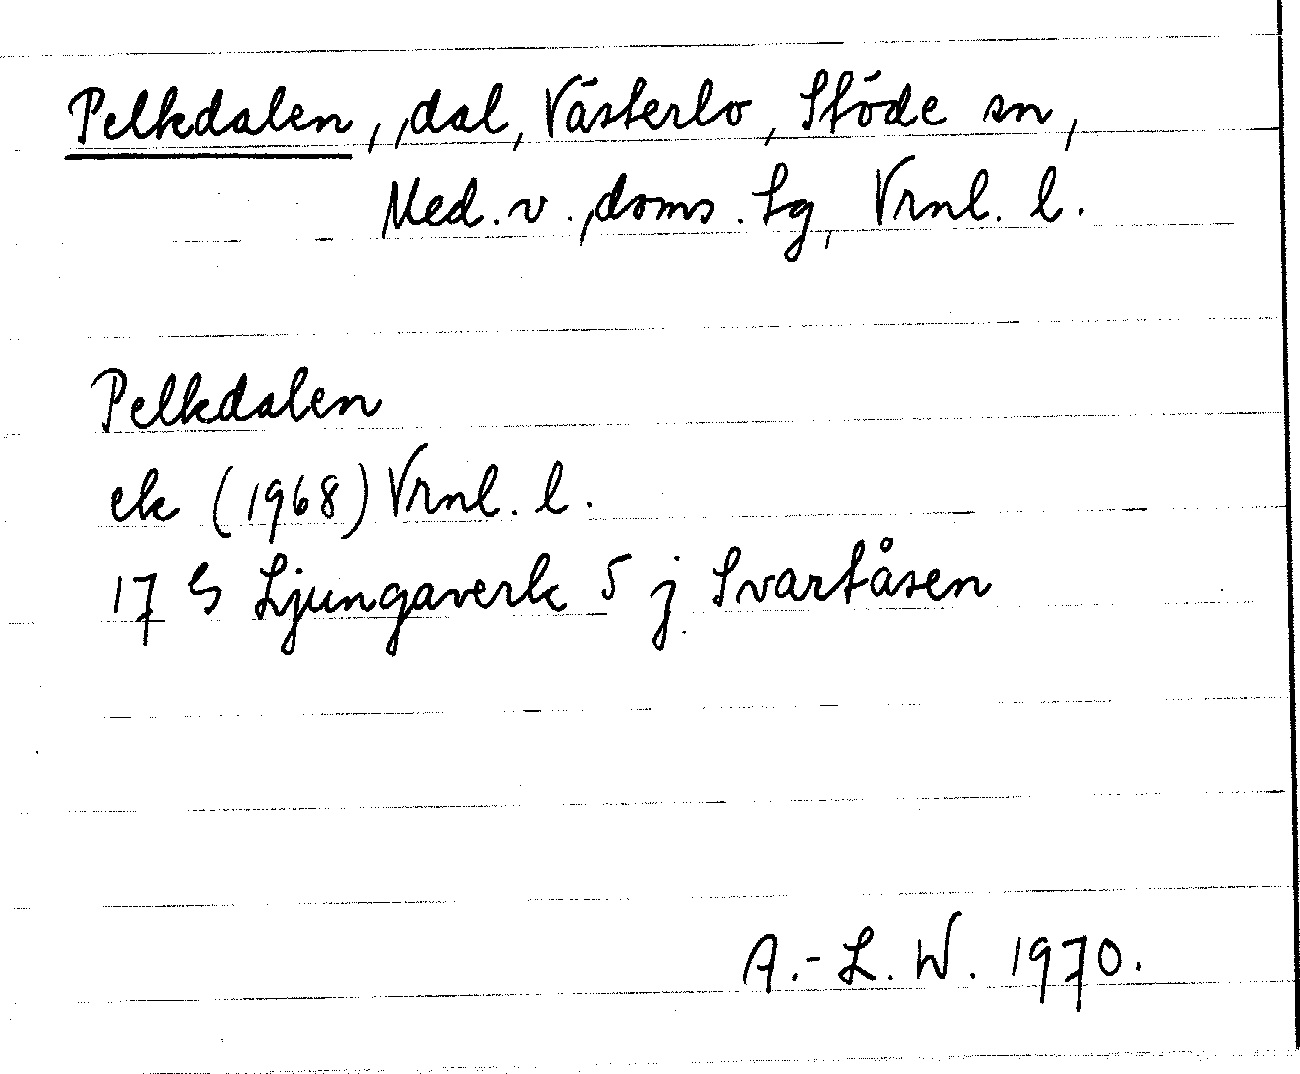 Pelkdalen, dal, Västerlo, Stöde sn,
Med. v. doms. Sg, Vrnl. l.
Pelkdalen
ek (1968) Vrnl. l.
17 G Ljungaverk 5 j Svartåsen
A.-L. W. 1970.